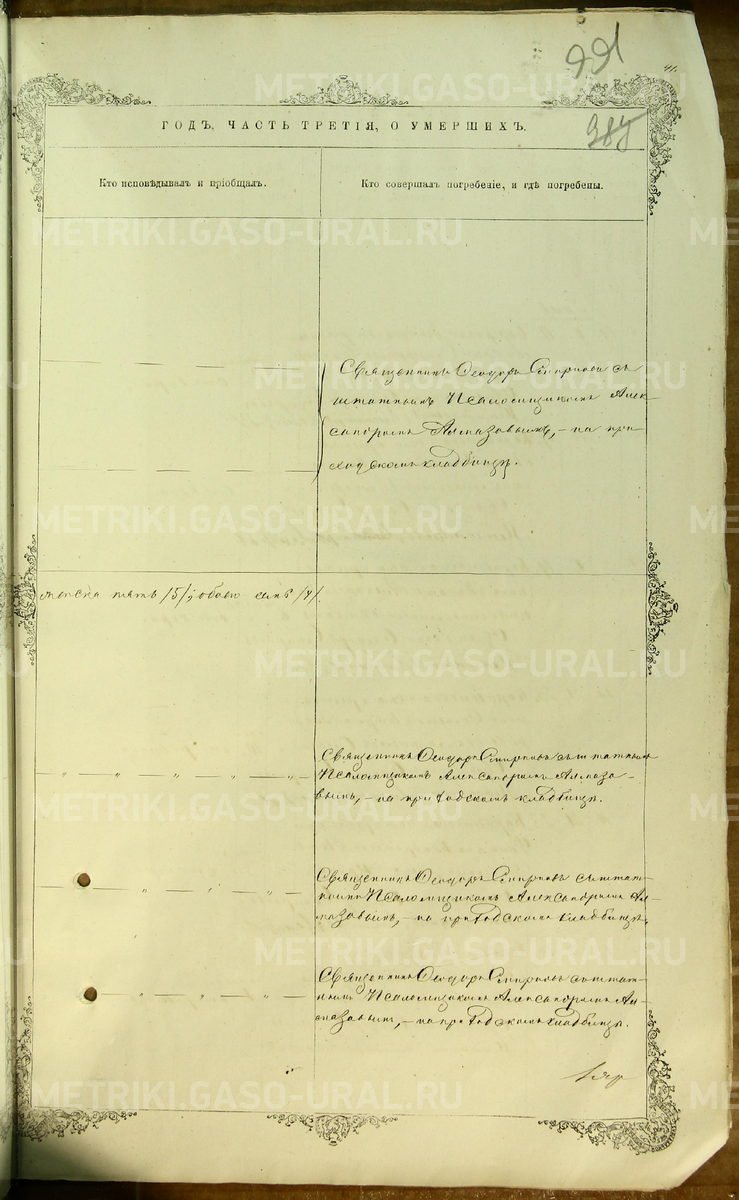 41.
991
ГОДЪ, ЧАСТЬ ТРЕТІЯ, О УМЕРШИХЪ.
Кто исповѣдывалъ и пріобщалъ.
Кто совершалъ погребеніе, и гдѣ погребены.
Священникъ Ѳеодоръ Смирновъ съ
штатнымъ Псаломщикомъ Алек-
сандромъ Алмазовымъ, – на при-
ходскомъ кладбищѣ.
женска пять /5/, обоего семь /7/.
Священникъ Ѳеодоръ Смирновъ съ штатнымъ
Псаломщикомъ Александромъ Алмазо-
вымъ, – на приходскомъ кладбищѣ.
Священникъ Ѳеодоръ Смирновъ съ штат-
нымъ Псаломщикомъ Александромъ Ал-
мазовымъ, – на приходскомъ кладбищѣ.
Священникъ Ѳеодоръ Смирновъ съ штат-
нымъ Псаломщикомъ Александромъ Ал-
мазовымъ, – на приходскомъ кладбищѣ.
METRIKI.GASO-URAL.RU